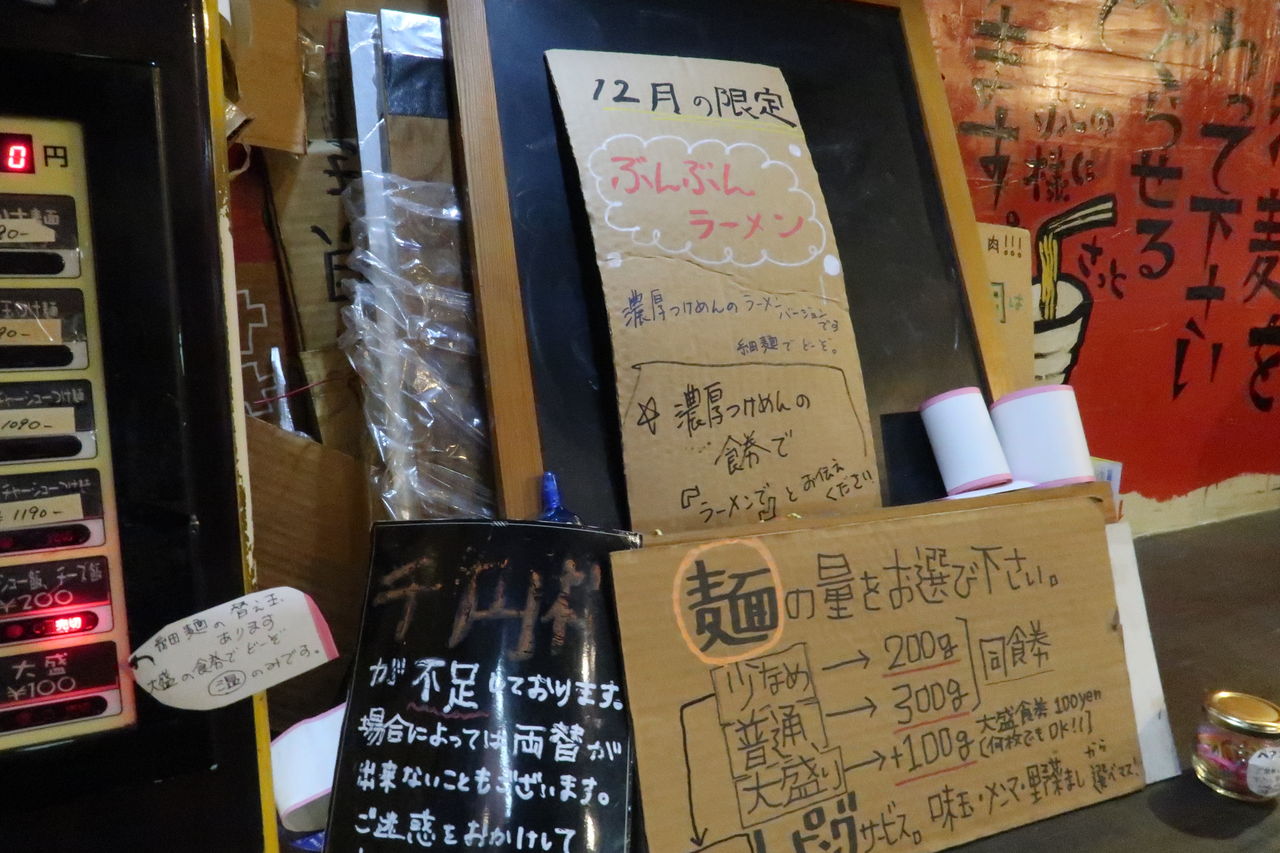 0円
チャーシューつけ麺
1090-
チャーシューつけ麺
1190-
チーズ飯
¥200
売切
大盛
¥100
細麺の替え玉
あります
大盛の食券でどーぞ
温のみです。
12月の限定
ぶんぶん
ラーメン
濃厚つけめんのラーメン
バージョン
です
細麺でどーぞ。
☆濃厚つけめんの
食券で
『ラーメンで』と
お伝え
ください
千円札
が不足しております。
場合によっては両替が
出来ないこともございます。
ご迷惑をおかけして
麺の量をお選び下さい。
少なめ → 200g
普通 → 300g
同食券
大盛り → +100g
大盛食券100yen
(何枚でもOK!!)
トッピングサービス。
味玉・メンマ・野菜まし
から
選べて
肉!!!
は
麺を
って下さい
らせる
ます。
りょんの
様に
さっと